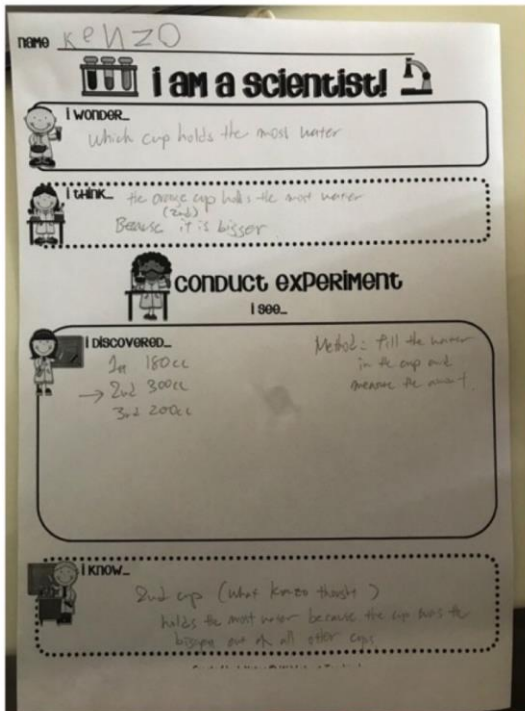 name KENZO
i am a scientist!
i wonder...
which cup holds the most water
i think... the orange cup holds the most water
(2nd)
Because it is bigger.
conduct experiment
i see...
i discovered...
1st 180cc
→ 2nd 300cc
3rd 200cc
Method: fill the water
in the cup and
measure the amount.
i know...
2nd cup (what Kenzo thought)
holds the most water because the cup was the
biggest out of all other cups